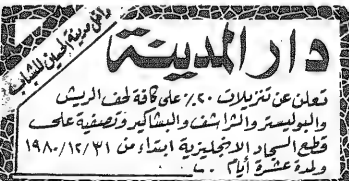 داخل مدينة الحسين للشباب
دار المدينة
تعلن عن تنزيلات ٢٠٪ على كافة لحف الريش
والبوليستر والشراشف والبشاكير وتصفية على
قطع السجاد الانجليزية ابتداء من ١٩٨٠/١٢/٣١
ولمدة عشرة أيام ..